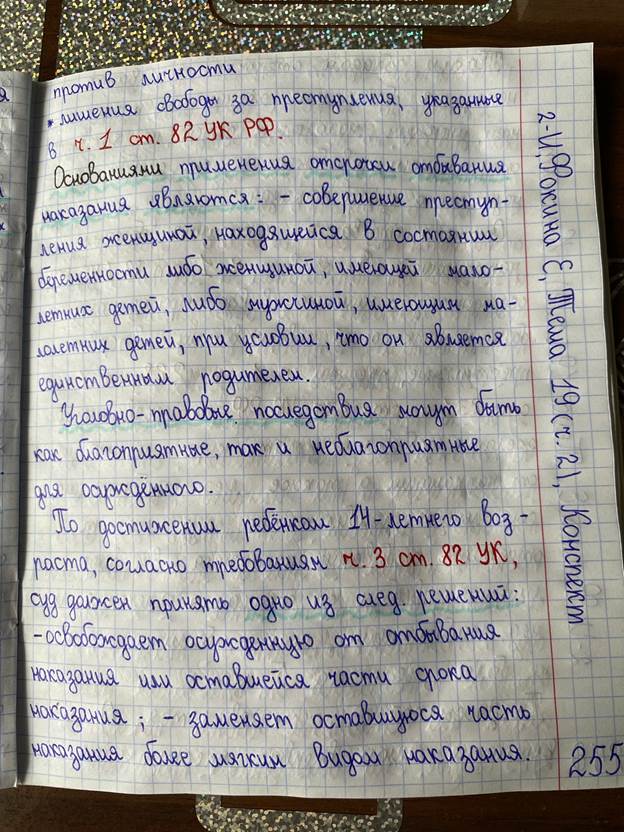 против личности
• лишения свободы за преступления, указанные
в ч. 1 ст. 82 УК РФ.
Основаниями применения отсрочки отбывания
наказания являются: - совершение преступ-
ления женщиной, находящейся в состоянии
беременности либо женщиной, имеющей мало-
летних детей, либо мужчиной, имеющим ма-
лолетних детей, при условии, что он является
единственным родителем.
Уголовно-правовые последствия могут быть
как благоприятные, так и неблагоприятные
для осуждённого.
По достижении ребёнком 14-летнего воз-
раста, согласно требованиям ч. 3 ст. 82 УК,
суд должен принять одно из след. решений:
-освобождает осужденную от отбывания
наказания или оставшейся части срока
наказания; - заменяет оставшуюся часть
наказания более мягким видом наказания.
2-И, Фокина Е, Тема 19 (ч. 2), Конспект
255